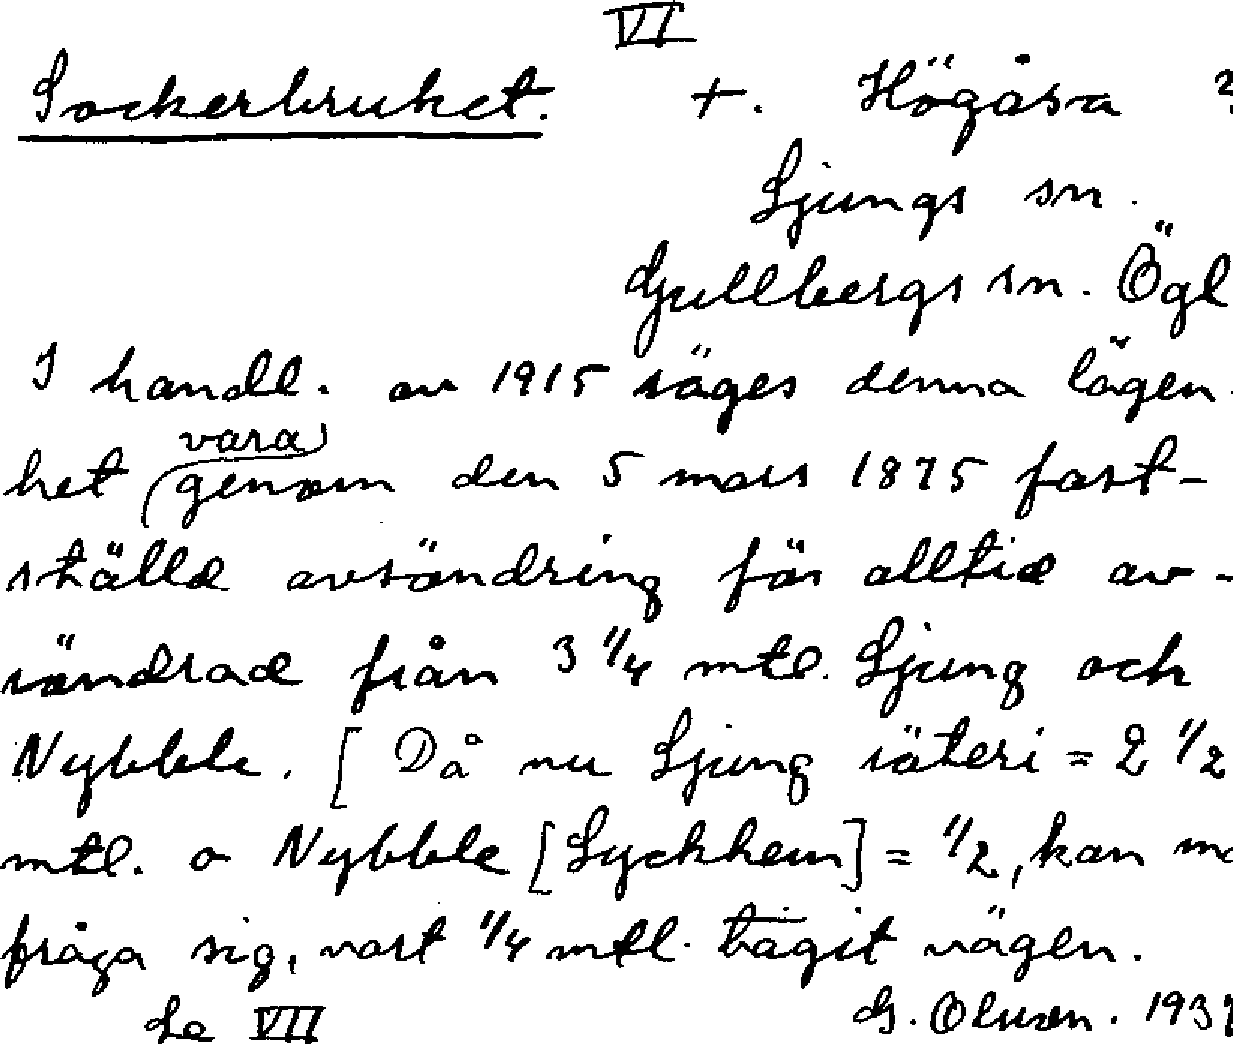 VI
Sockerbruket. +. Högåsa ?
Ljungs sn.
Gullbergs sn. Ögl
I handl. av 1915 säges denna lägen-
het vara genom den 5 mars 1875 fast-
ställd avsöndring för alltid av-
söndrad från 3 1/4 mtl. Ljung och
Nybble. [Då nu Ljung säteri = 2 1/2
mtl. o Nybble [Lyckhem] = 1/2, kan
fråga sig, vart 1/4 mtl. tagit vägen.
Se VII G. Olsson.